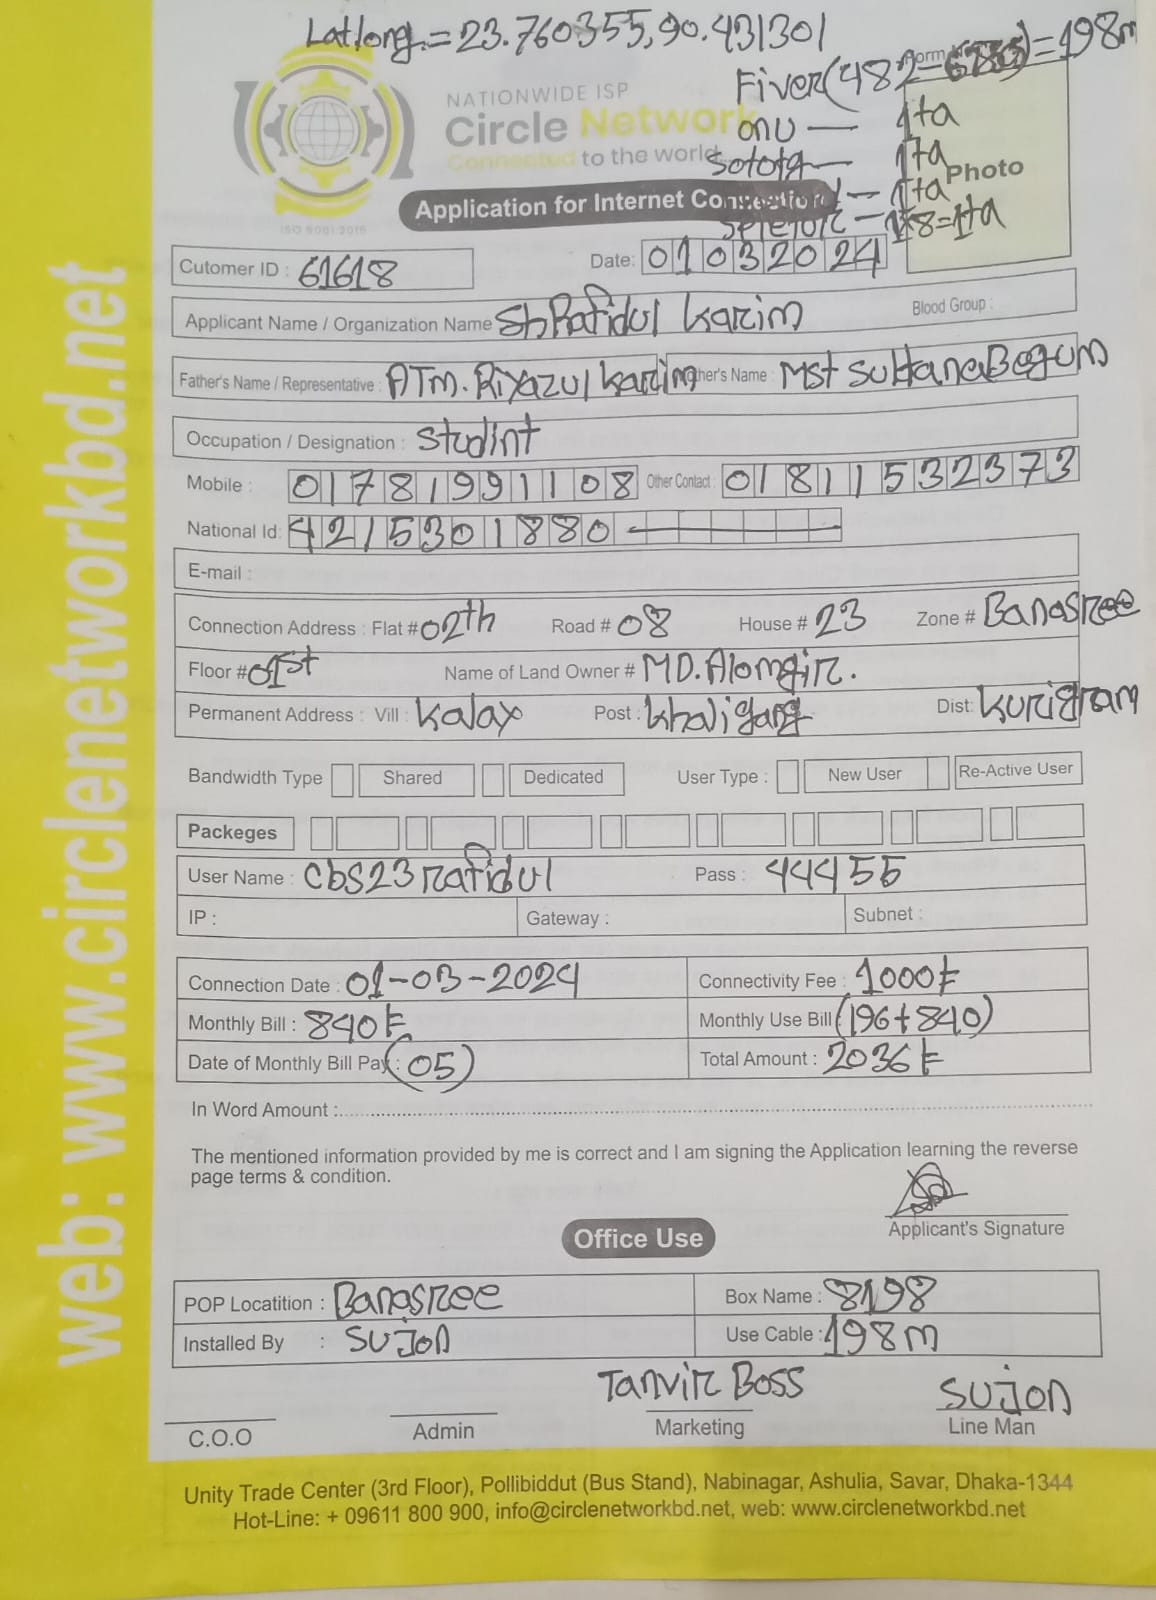 Lat/long = 23.760355, 90.431301
Form
Fiver (482- )=198m
NATIONWIDE ISP
Circle Network
onu — 1ta
Connected to the world
Sototg — 1ta
Photo
Application for Internet Connection
— 1ta
ISO 9001:2015
1*8=1ta
Cutomer ID : 61618
Date: 01032024
Applicant Name / Organization Name Sh Rafidul Karim
Blood Group :
Father's Name / Representative : ATM. Riyazul Karim
Mother's Name : Mst Sultana Begum
Occupation / Designation : Studint
Mobile : 01781991108 Other Contact : 01811532373
National Id: 4215301880
E-mail :
Connection Address : Flat # 02th Road # 08 House # 23 Zone # Banasree
Floor # 01st Name of Land Owner # MD. Alomgir.
Permanent Address : Vill : Kalax Post : Khaligang Dist: Kurigram
Bandwidth Type Shared Dedicated User Type : New User Re-Active User
Packeges
User Name : cbs23rafidul Pass : 44455
IP : Gateway : Subnet :
Connection Date : 01-03-2024 Connectivity Fee : 1000৳
Monthly Bill : 840৳ Monthly Use Bill : (196+840)
Date of Monthly Bill Pay : (05) Total Amount : 2036৳
In Word Amount :
The mentioned information provided by me is correct and I am signing the Application learning the reverse
page terms & condition.
Applicant's Signature
Office Use
POP Locatition : Banasree Box Name : 8198
Installed By : Sujon Use Cable : 198m
Tanvir Boss Sujon
C.O.O Admin Marketing Line Man
Unity Trade Center (3rd Floor), Pollibiddut (Bus Stand), Nabinagar, Ashulia, Savar, Dhaka-1344
Hot-Line: + 09611 800 900, info@circlenetworkbd.net, web: www.circlenetworkbd.net
web: www.circlenetworkbd.net